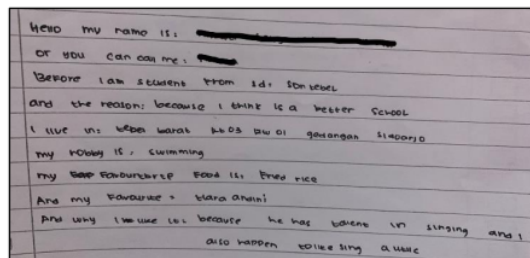 Hello my name is:
or you can call me:
Before I am student from sd. Sontebel
and the reason: because I think is a better School
I live in: tebel barat Rt 03 Rw 01 gedangan Sidoarjo
my hobby is, swimming
my Favourite Food is, Fried rice
And my Favourite : tiara andini
And why I like is: because he has talent in singing and I
also happen to like sing a